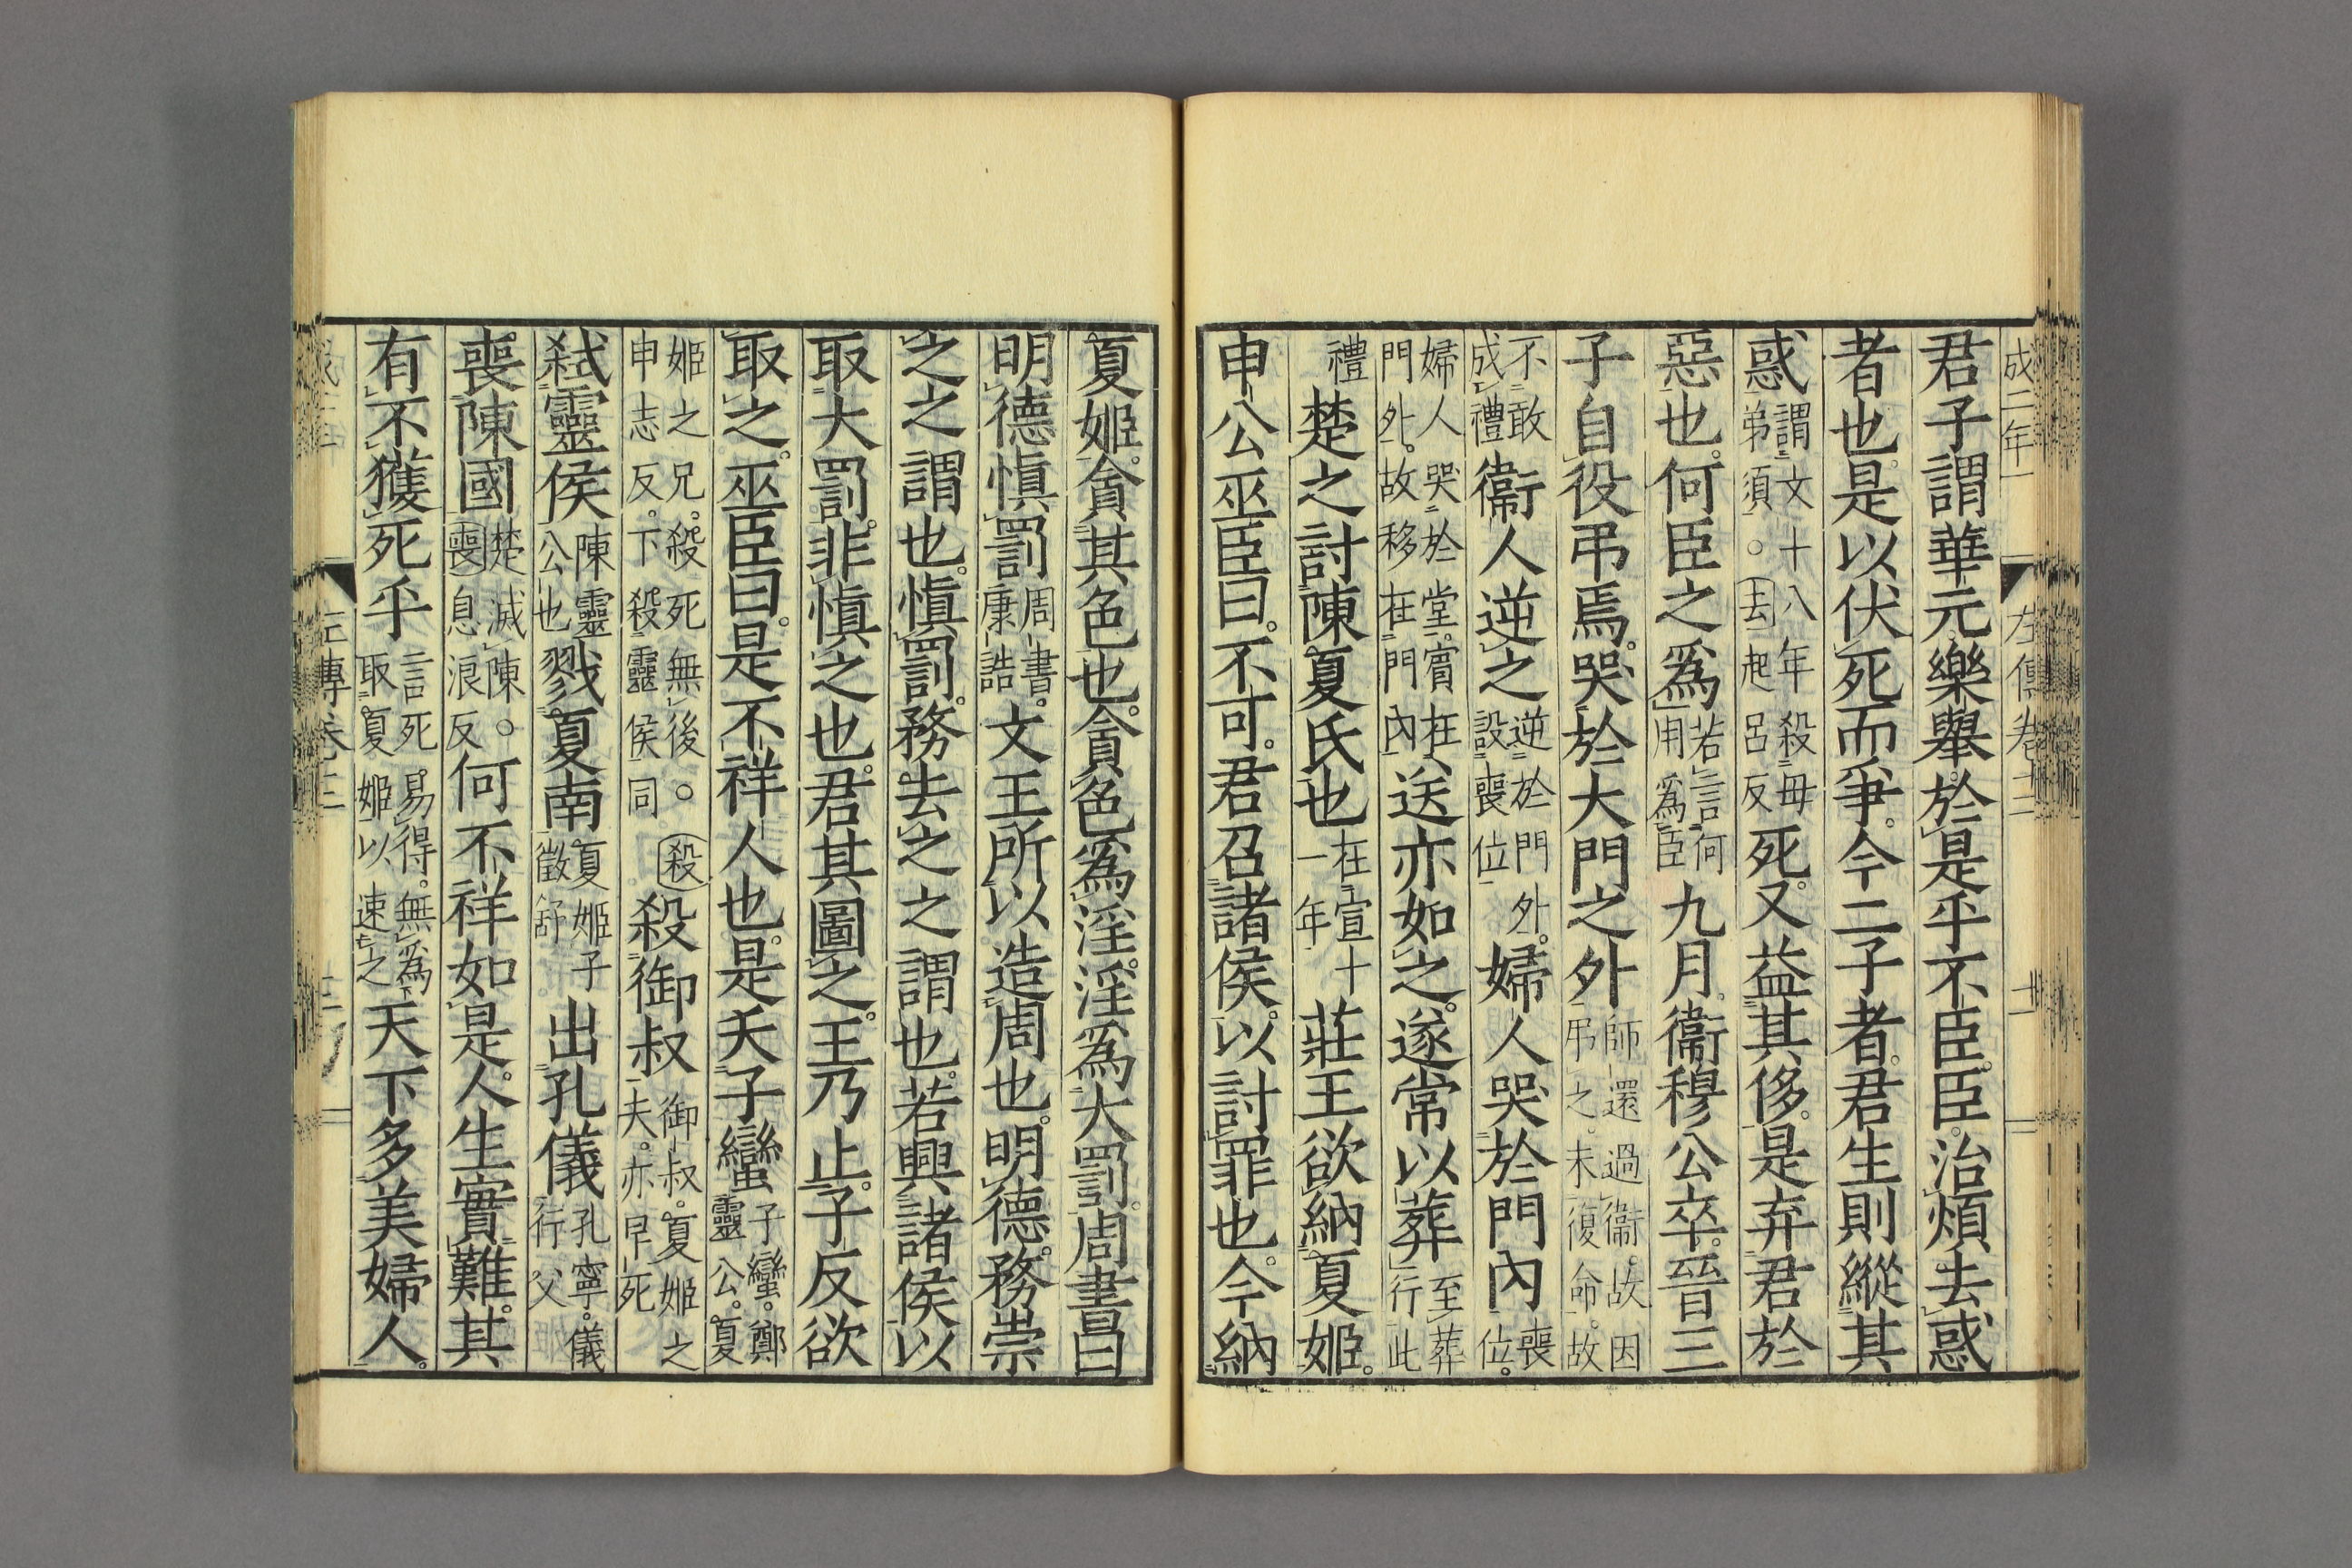 成二年
左傳卷十二
十一
君子謂華元樂舉於是乎不臣臣治煩去惑
者也是以伏死而爭今二子者君生則縱其
惑謂文十八年殺母弟須。去起呂反死又益其侈是弃君於
惡也何臣之爲若言何用爲臣九月衞穆公卒晉三
子自役弔焉哭於大門之外師還過衞故因弔之未復命故
不敢成禮衞人逆之逆於門外設喪位婦人哭於門內喪位
婦人哭於堂賓在門外故移在門內送亦如之遂常以葬至葬行此
禮楚之討陳夏氏也在宣十一年莊王欲納夏姬
申公巫臣曰不可君召諸侯以討罪也今納
夏姬貪其色也貪色爲淫淫爲大罰周書曰
明德愼罰周書康誥文王所以造周也明德務崇
之之謂也愼罰務去之之謂也若興諸侯以
取大罰非愼之也君其圖之王乃止子反欲
取之巫臣曰是不祥人也是夭子蠻子蠻鄭靈公夏
姬之兄殺死無後。殺申志反下殺靈侯同殺御叔御叔夏姬之夫亦早死
弒靈侯陳靈公也戮夏南夏姬子徵舒出孔儀孔寧儀行父
喪陳國楚滅陳。喪息浪反何不祥如是人生實難其
有不獲死乎言死易得無爲取夏姬以速之天下多美婦人